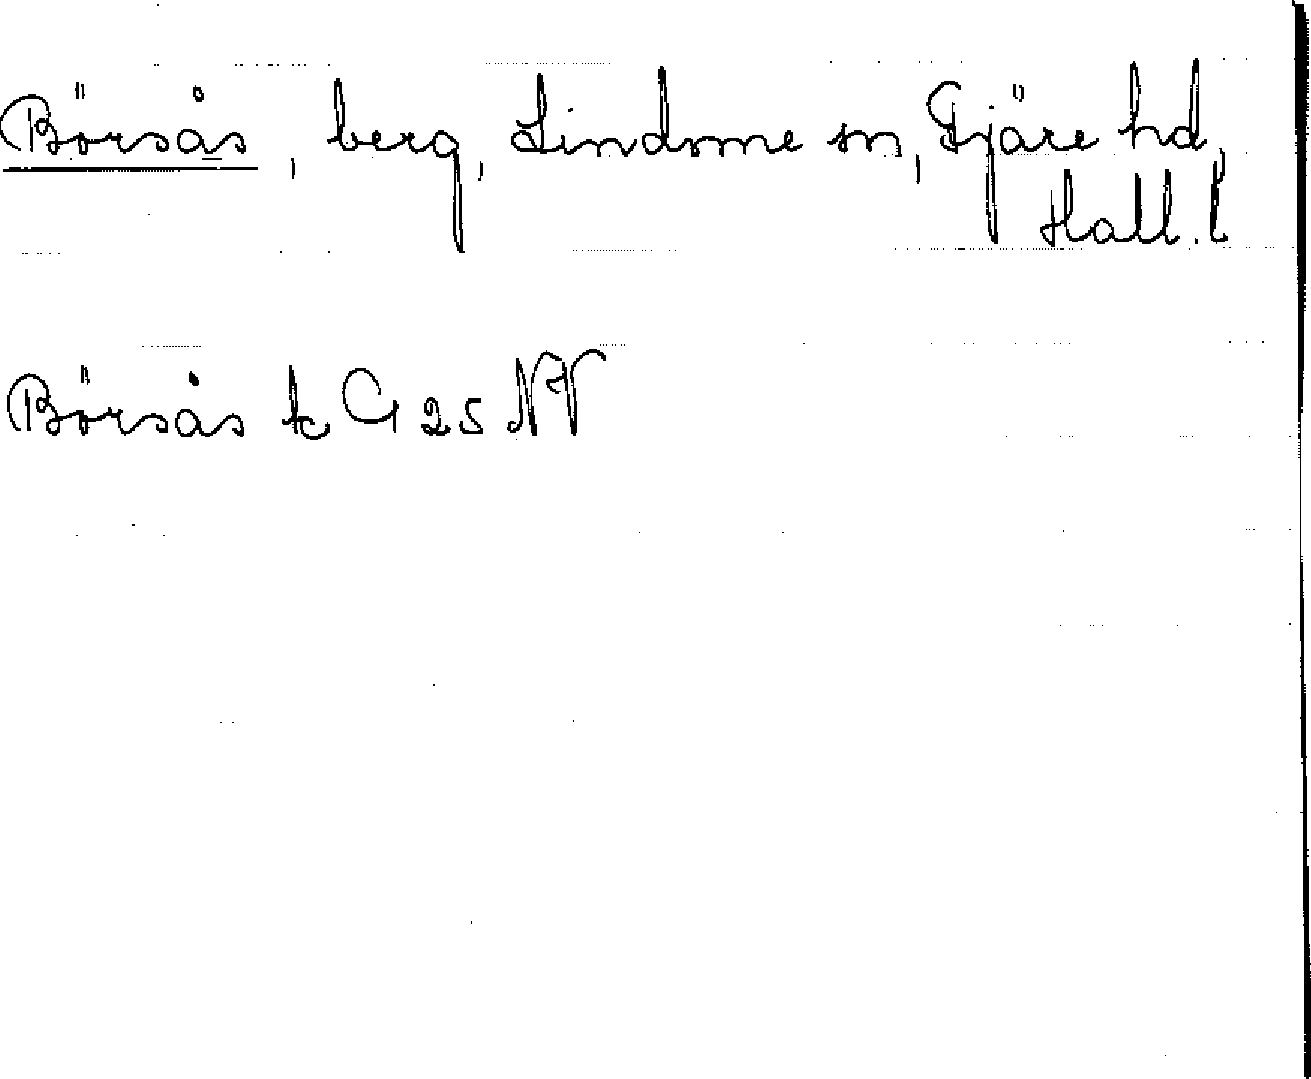 Börsås, berg, Lindome sn, Fjäre hd,
Hall. l
Börsås tc G 25 NV